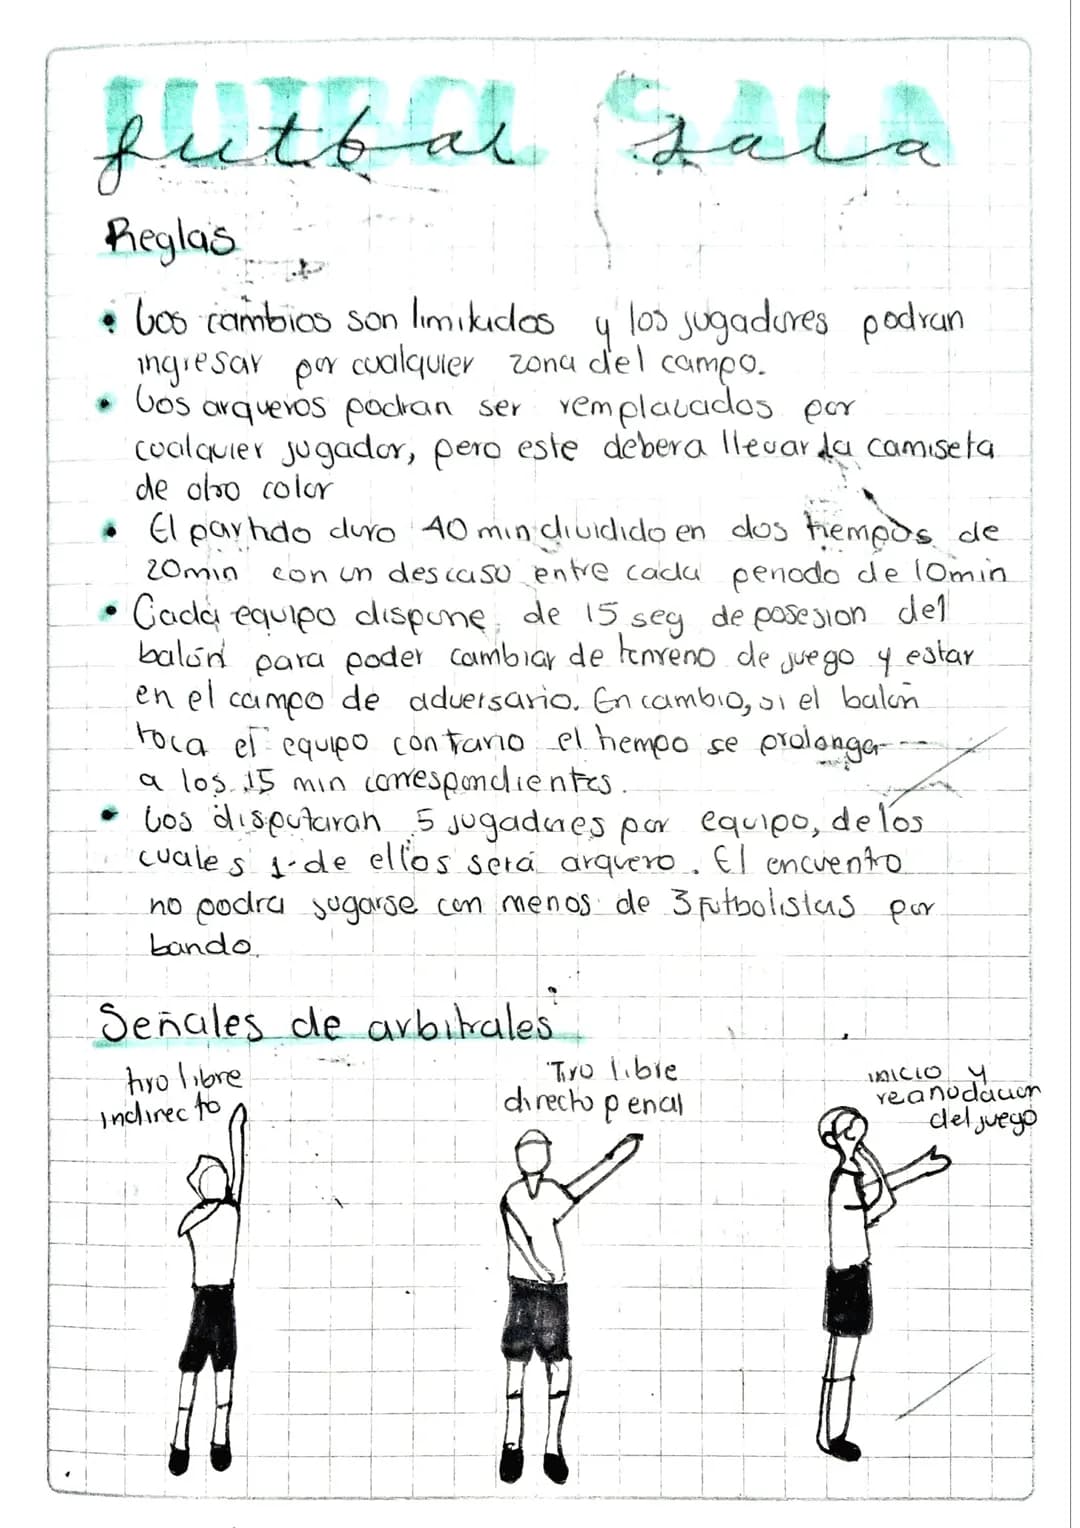 FUTBOL SALA
futbol sala
Reglas
• Los cambios son limitados y los jugadores podran
ingresar por cualquier zona del campo.
• Los arqueros podran ser remplazados por
cualquier jugador, pero este debera llevar la camiseta
de otro color
• El partido duro 40 min dividido en dos tiempos de
20min con un descaso entre cada periodo de 10min
• Cada equipo dispone de 15 seg de posesion del
balón para poder cambiar de terreno de juego y estar
en el campo de adversario. En cambio, si el balon
toca el equipo contrario el tiempo se prolonga
a los 15 min correspondientes.
• Los disputaran 5 jugadores por equipo, de los
cuales 1 de ellos será arquero. El encuentro
no podra jugarse con menos de 3 futbolistas por
bando.
Señales de arbitrales
tiro libre
indirecto
Tiro libre
directo penal
inicio y
reanudacion
del juego